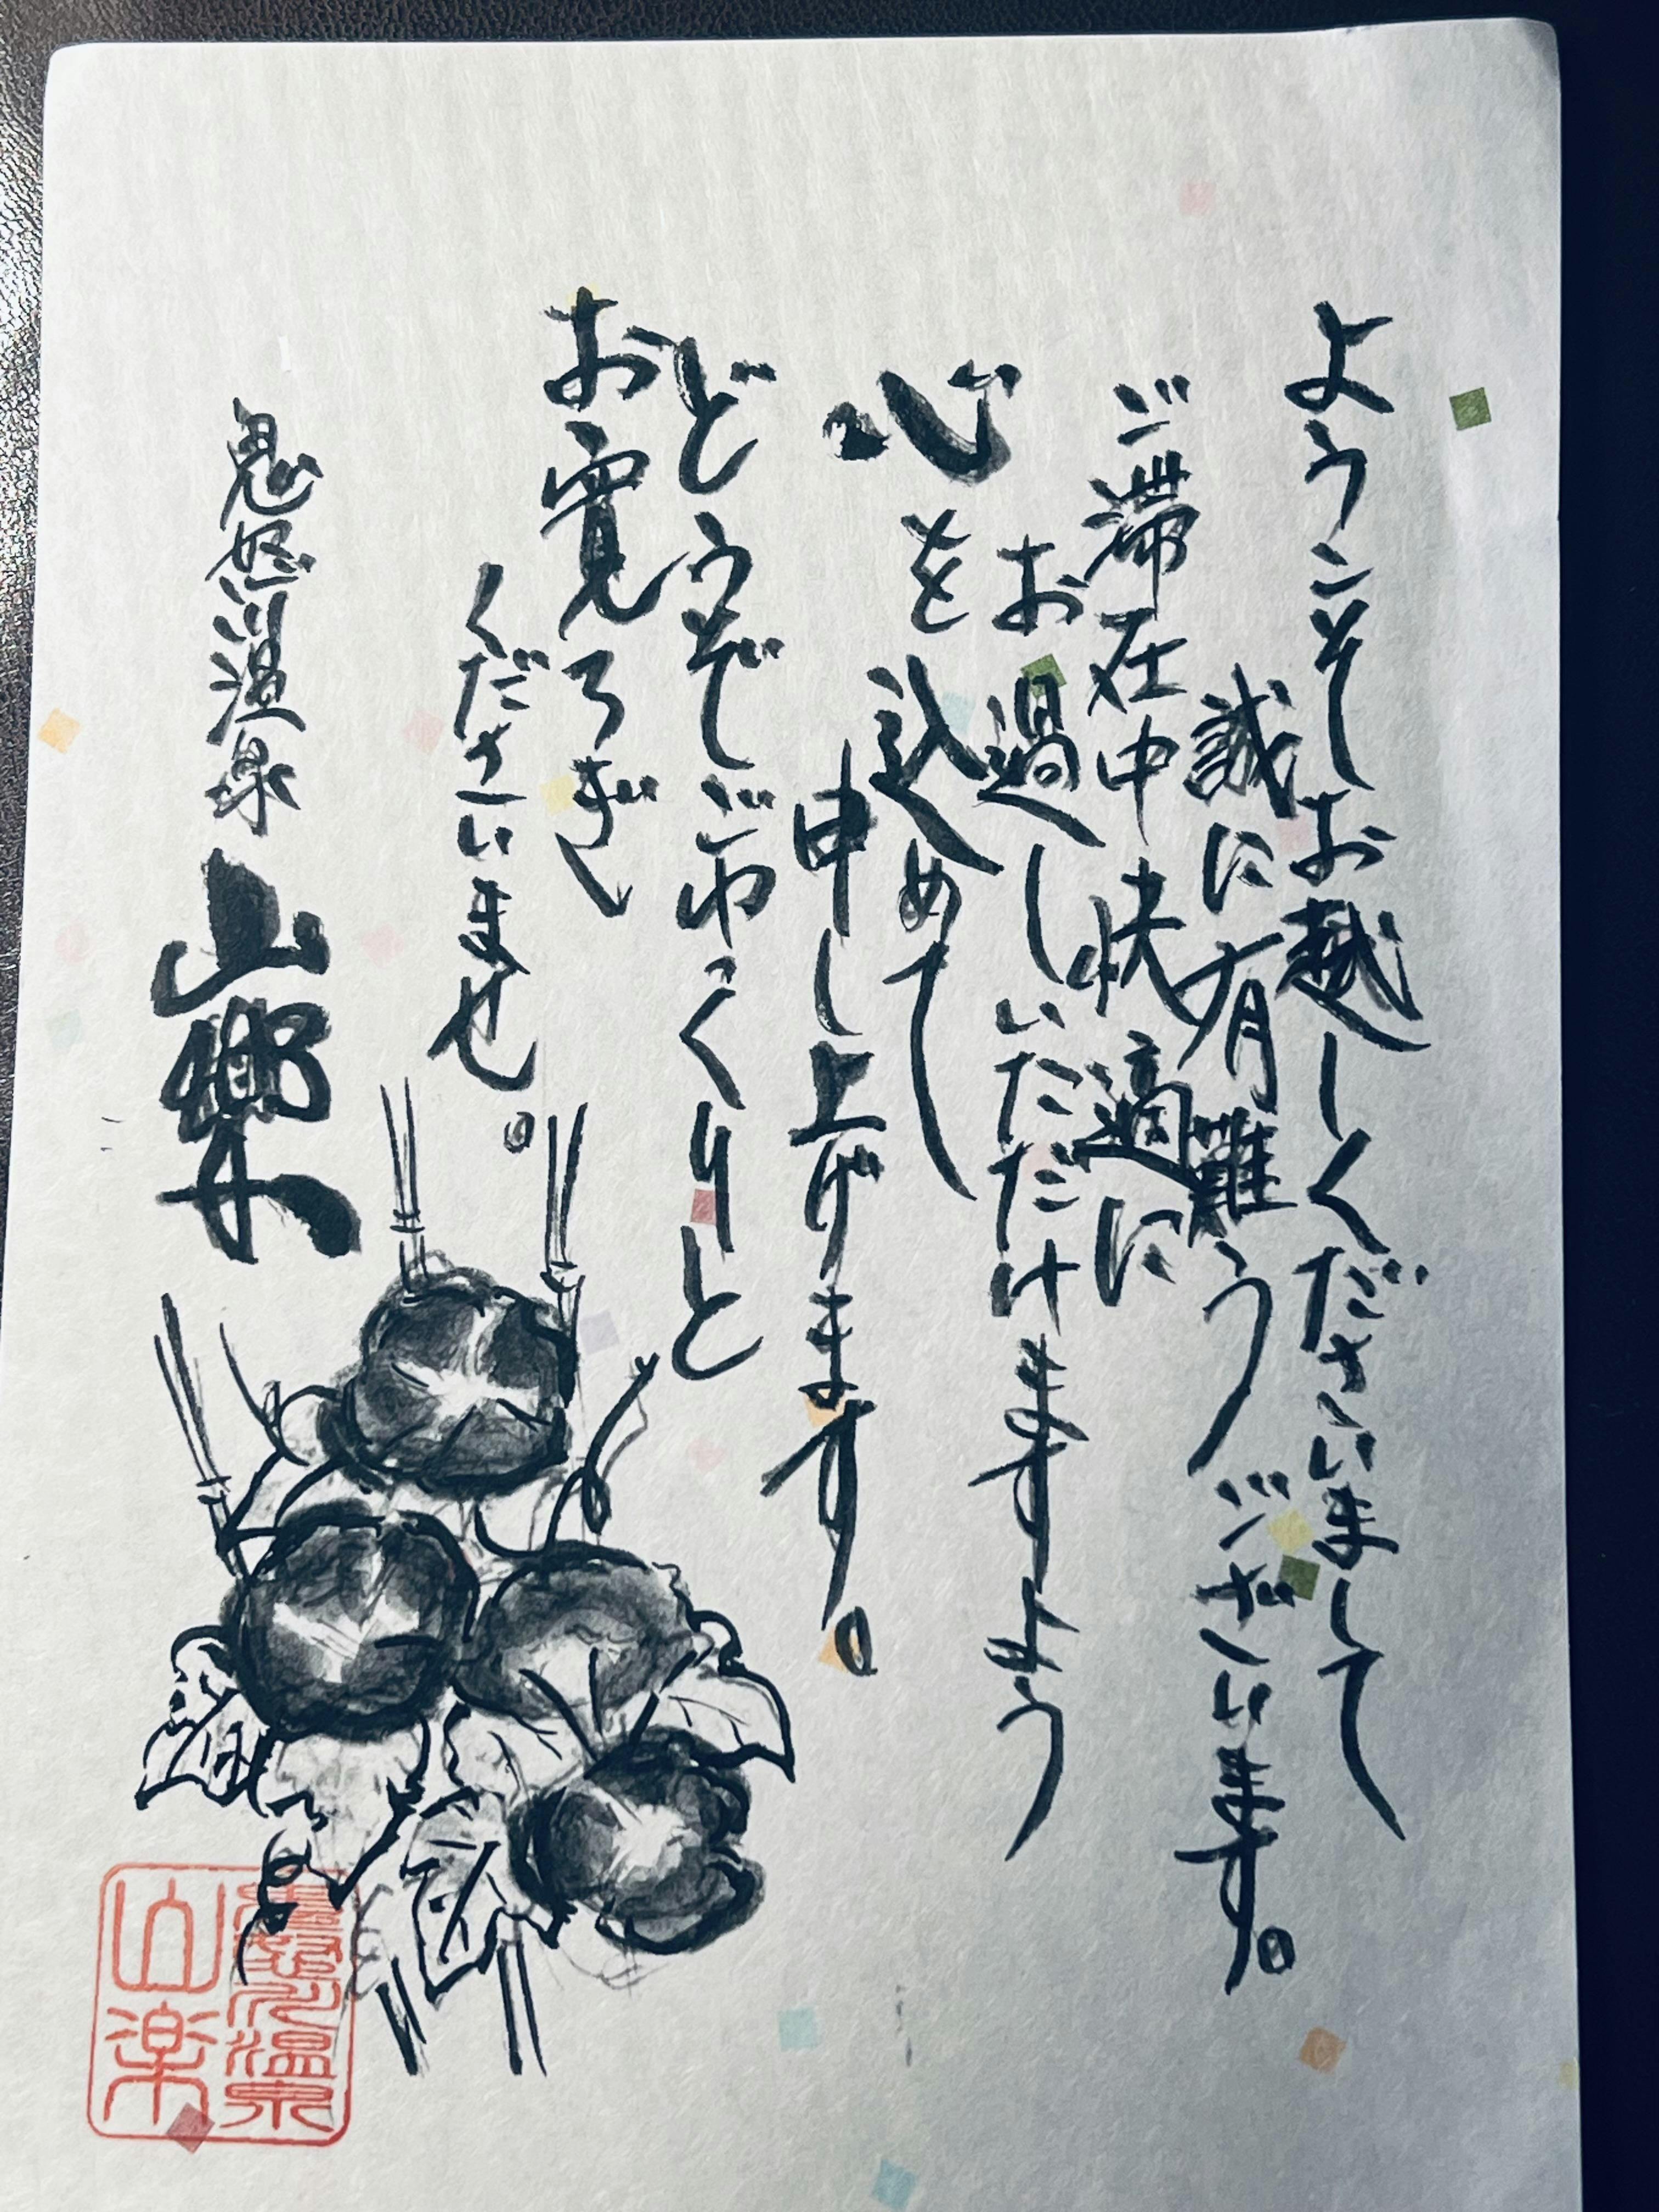 ようこそお越しくださいまして
誠に有難うございます。
ご滞在中快適に
お過しいただけますよう
心を込めて
申し上げます。
どうぞごゆっくりと
お寛ろぎ
くださいませ。
鬼怒川温泉 山樂
鬼怒川温泉
山楽